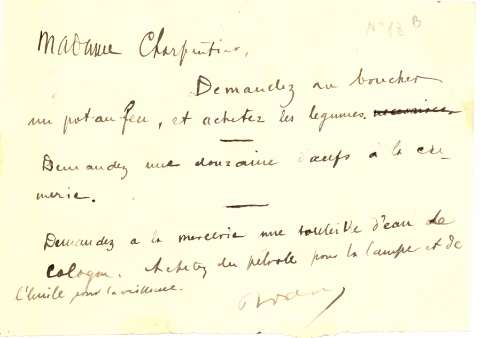 Nº 12 B
Madame Charpentier,
Demandez au boucher
un pot au feu, et achetez les legumes
Demandez une douzaine d'œufs à la cré-
merie.
Demandez a la mercerie une bouteille d'eau de
Cologne. Achetez du petrole pour la lampe et de
l'huile pour la veilleuse.
Rodin